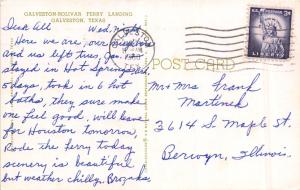 GALVESTON-BOLIVAR FERRY LANDING
GALVESTON, TEXAS
Dear All Wed. Night
Here we are, our neighbors
and us left Tues. Jan.
stayed in Hot Springs, Ark.
5 days, took in 6 hot
baths, they sure make
one feel good, will leave
for Houston tomorrow,
Rode the ferry today
scenery is beautiful
but weather chilly.
POST CARD
3¢
LIBERTY
Mr + Mrs Frank
Martinek
3614 S. Maple St.
Berwyn, Illinois.